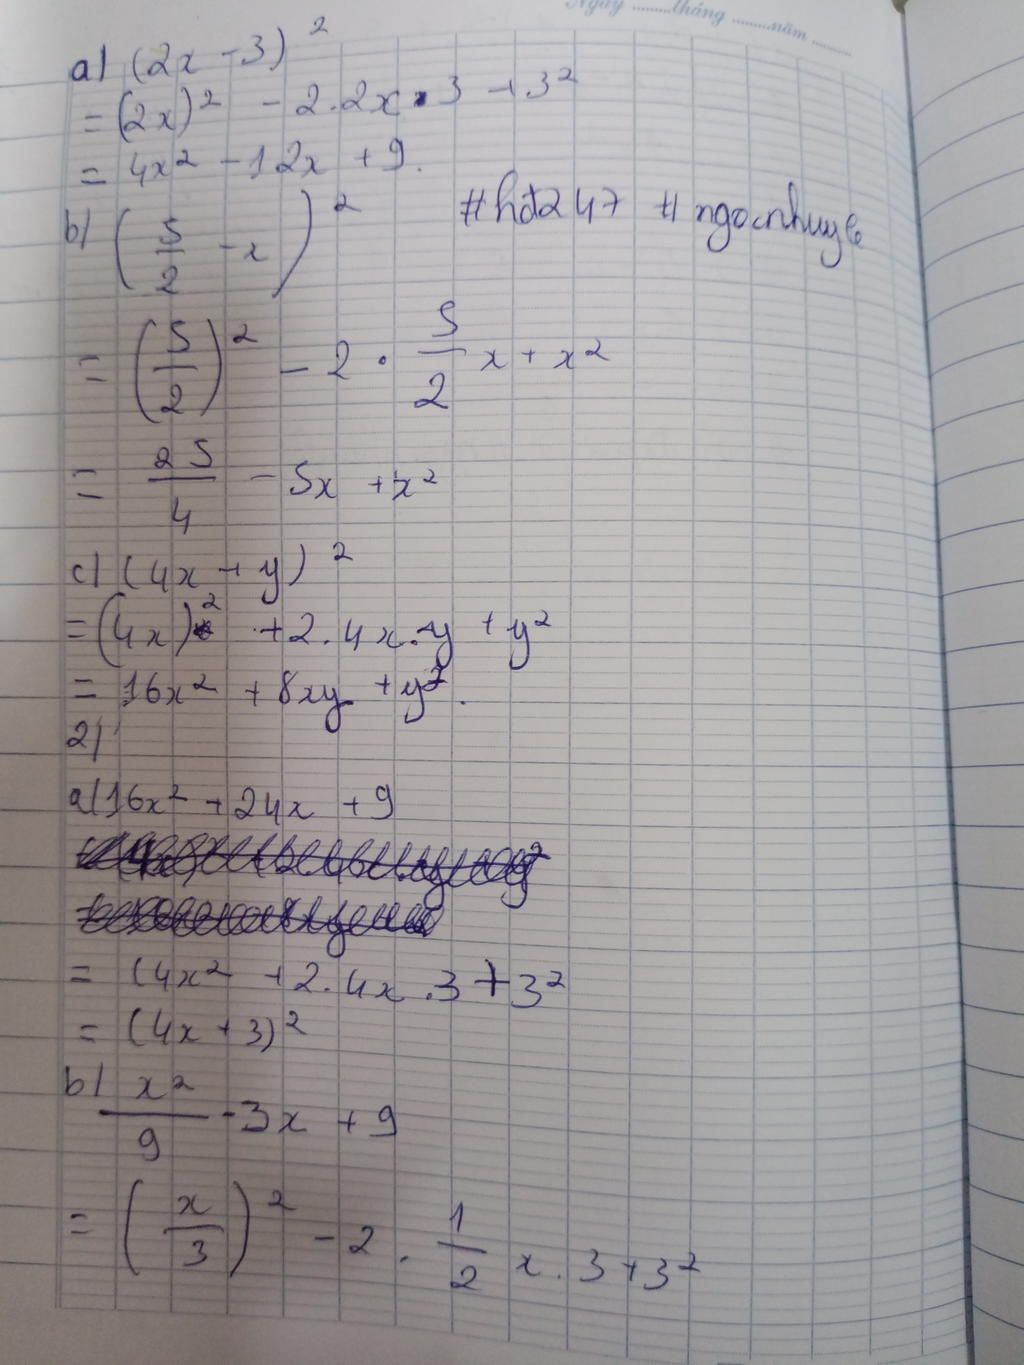 Ngày ........tháng ........năm ........
a) (2x - 3)²
= (2x)² - 2.2x.3 + 3²
= 4x² - 12x + 9.
#hđ247 #ngocnhuy6
b) (5/2 - x)²
= (5/2)² - 2 . 5/2 x + x²
= 25/4 - 5x + x²
c) (4x + y)²
= (4x)² + 2.4x.y + y²
= 16x² + 8xy + y².
2)
a) 16x² + 24x + 9
= (4x² + 2.4x.3 + 3²
= (4x + 3)²
b) x²/9 - 3x + 9
= (x/3)² - 2 . 1/2 x . 3 + 3²